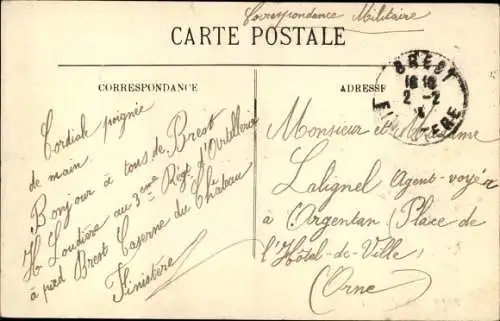 Correspondance Militaire
CARTE POSTALE
CORRESPONDANCE
Cordiale poignée
de main.
Bonjour à tous de Brest
H. Loudière au 3ème Régt d'Artillerie
à pied Brest Caserne du Château
Finistère
ADRESSE
BREST
18 18
2 - 2
FINISTERE
Monsieur et Madame
Lalignel Agent-voyer
à Argentan (Place de
l'Hôtel-de-Ville)
(Orne)